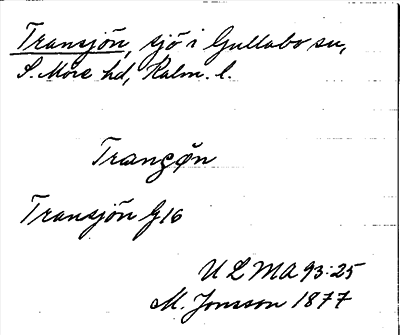 Transjön, sjö i Gullabo sn,
S. Möre hd, Kalm. l.
Transjön G16
ULMA 93:25
M. Jonsson 1877